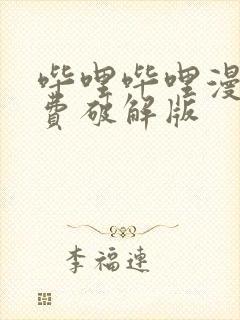 哔哩哔哩漫
费破解版
李福连